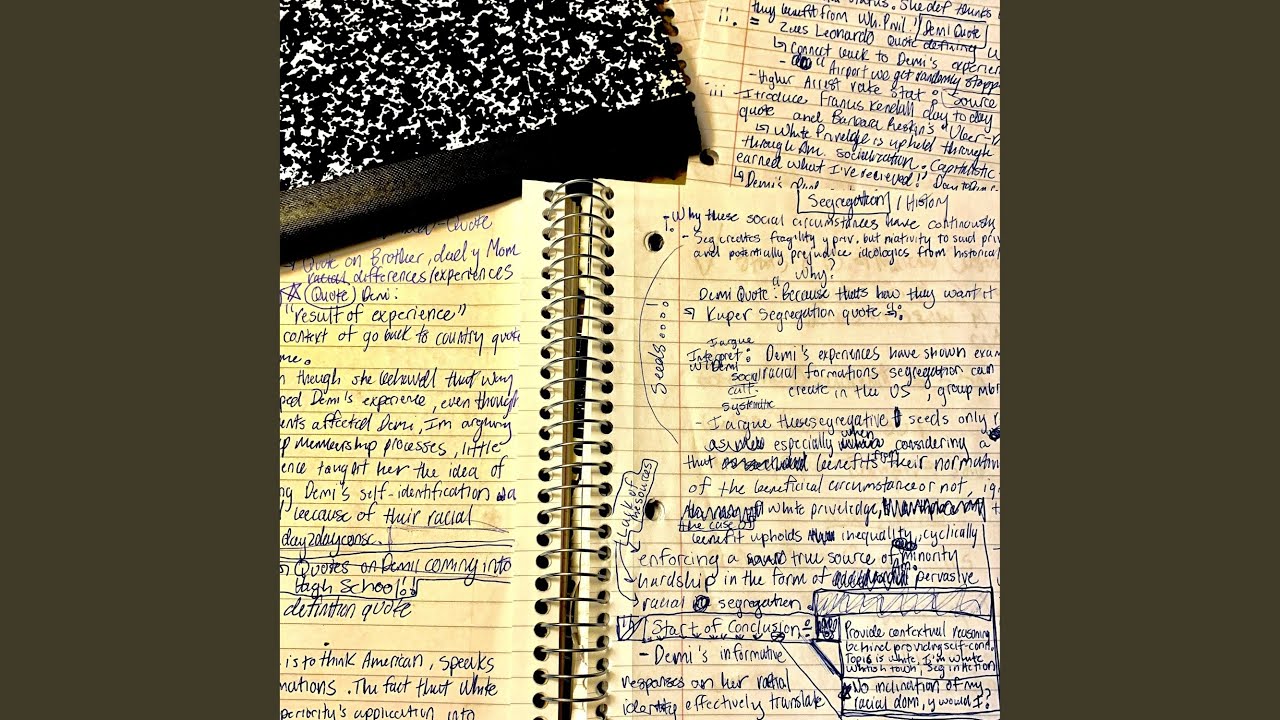 status. She def thinks
they benefit from Wh. Privl. Demi Quote
ii. = Zues Leonardo Quote defining W
↳ connect back to Demi's experien
- "Airport we get randomly stopp
- Higher Arrest rate stat : source
iii - Introduce Francis Kendall day to day
quote and Barbara Reskin's "Uber-D
↳ White Priveledge is upheld through
through Am. socialization. Capitalistic -
earned what I've recieved!
↳ Demi's
Segregation / History
i. - Why these social circumstances have continously
- Seg creates fragility y priv. but nativity to said priv
and potentially prejudice ideologies from historical
Why?
Demi Quote: Because thats how they want it
↳ Kuper Segregation quote
Seeds
I argue
Interpret: Demi's experiences have shown exam
w/ Demi
social racial formations segregation can
cult. create in the US, group mbr
systematic
- I argue these segregative seeds only
when
especially considering a
that benefits their normativ
of the beneficial circumstance or not,
white priveledge,
the case of
benefit upholds inequality, cyclically
enforcing a true source of minority
hardship in the form of pervasive
racial segregation.
Lack of
Resources
Start of Conclusion:
- Demi's informative
responses on her racial
identity effectively translate
Provide contextual reasoning
behind providing self-conn.
Topic is white, I'm white
Whitish town, seg in action
No inclination of my
racial dom, y would I?
Quote
↳ Quote on Brother, dad y Mom
racial differences/experiences
(Quote) Demi:
"result of experience"
context of go back to country quote
me.
n though she behaved that way
ped Demi's experience, even though
ents affected Demi, I'm arguing
p membership processes, little
ence taught her the idea of
ng Demi's self-identification
because of their racial
day2dayconsc.
Quotes on Demi coming into
high School!
definition quote
is to think American, speaks
mations. The fact that white
periority's application into